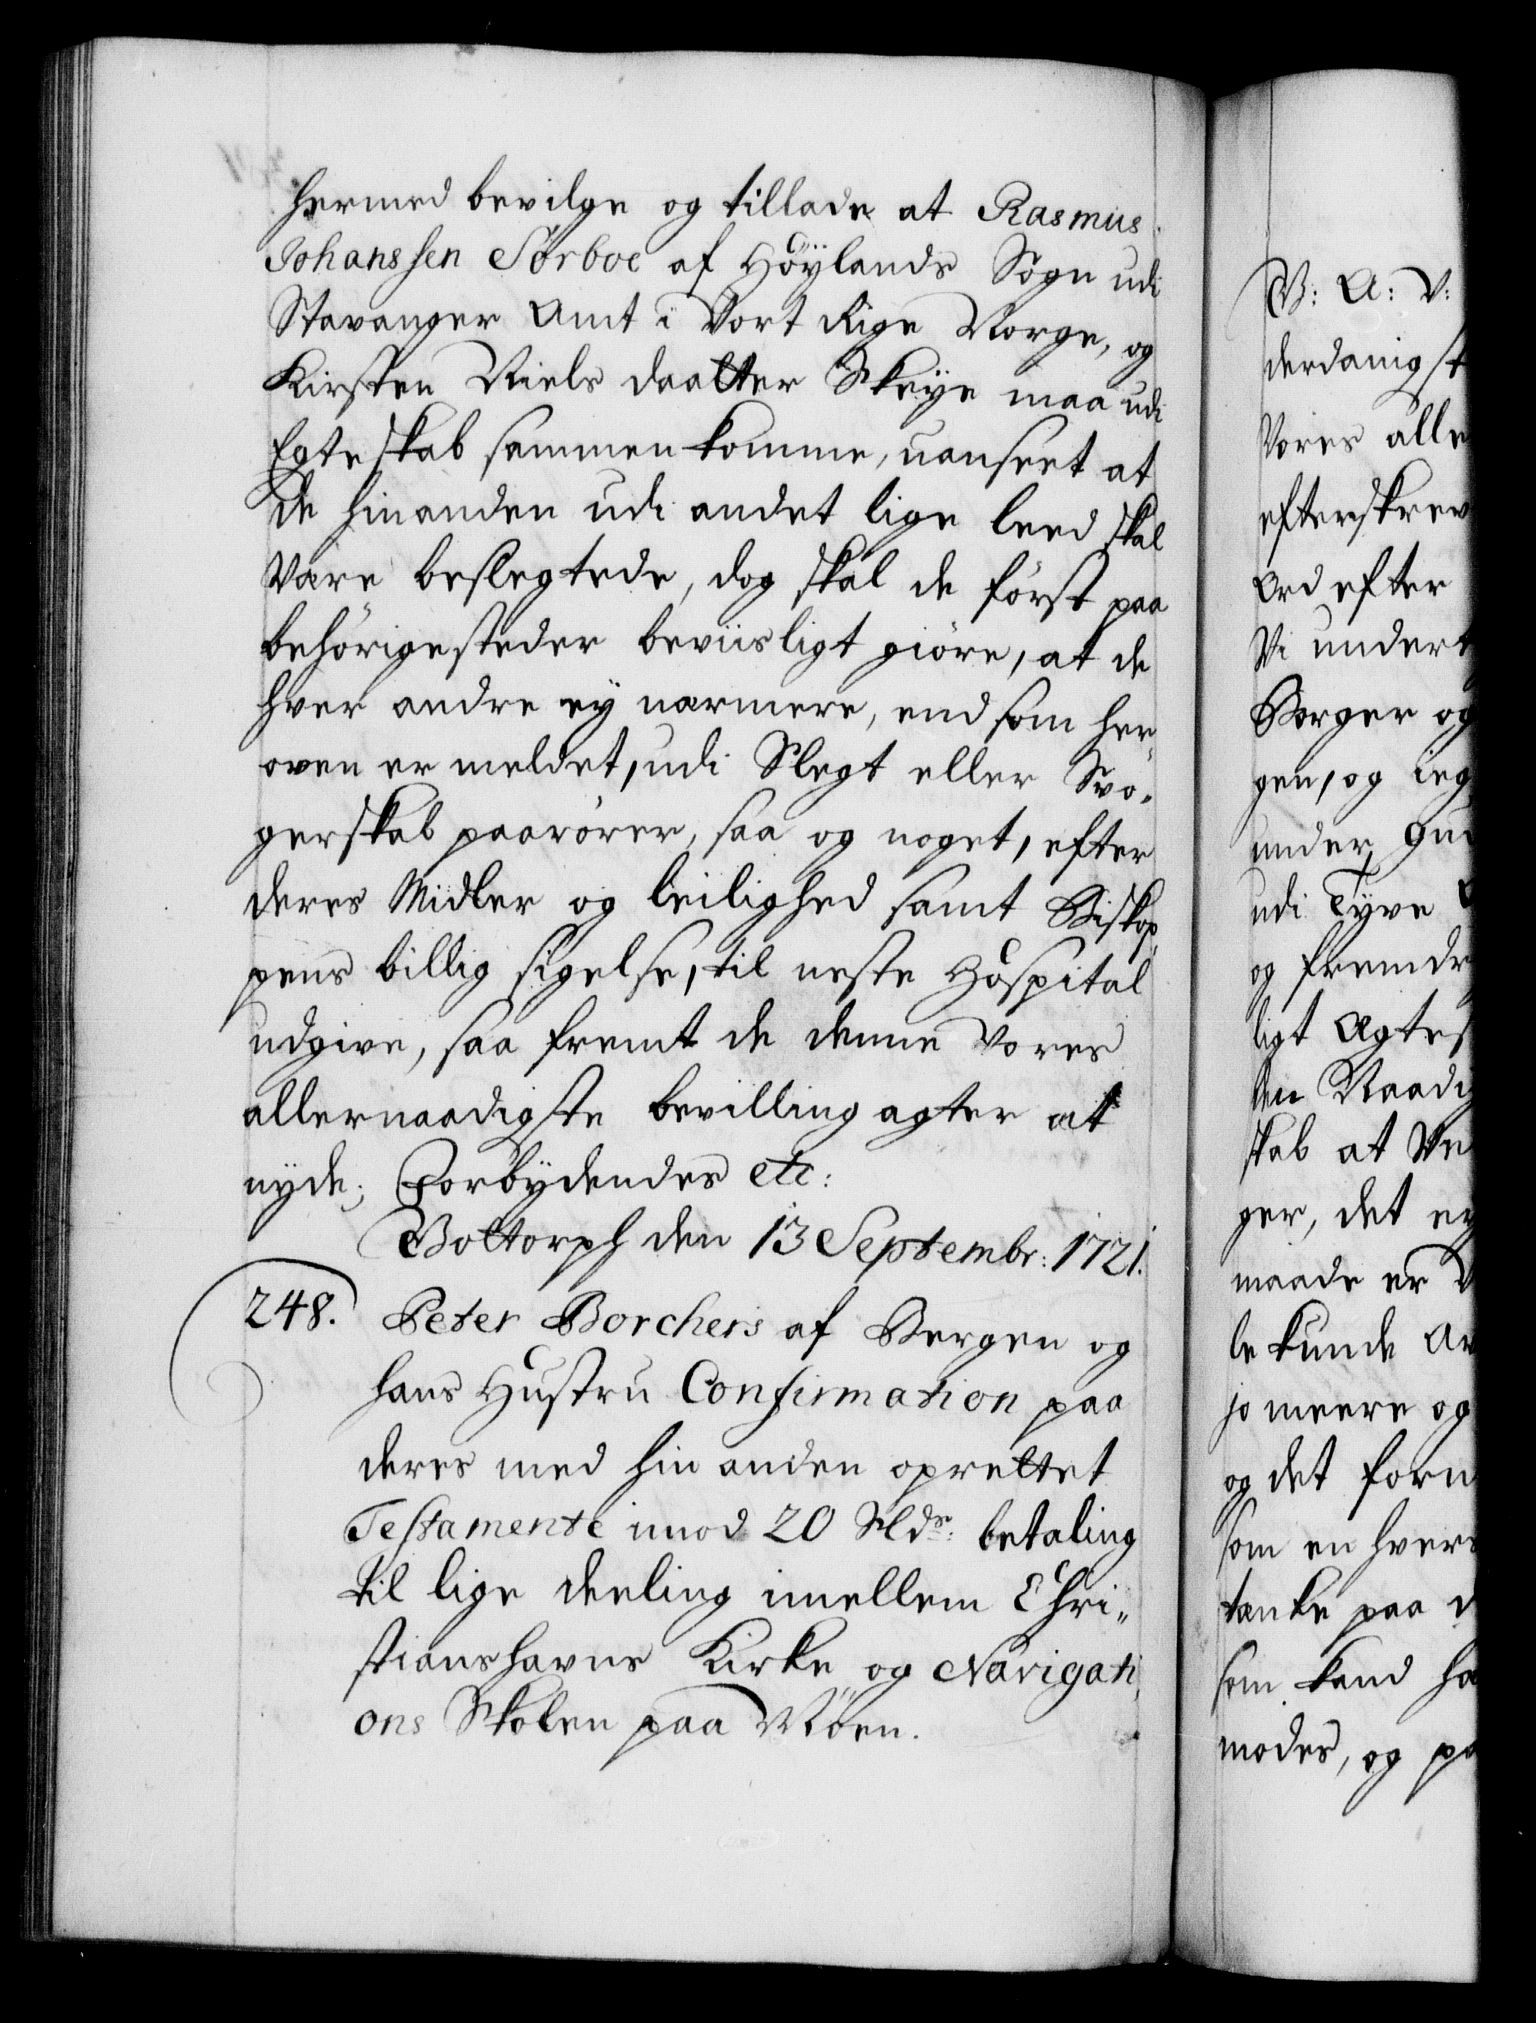 hermed bevilge og tillade at Rasmus
Johanssen Sörboe af Höylands Sogn udi
Stavanger Amt i Vort Rige Norge, og
Kirsten Niels daatter Skeye maa udi
Egteskab sammen komme, uanseet at
de hinanden udi andet lige leed skal
være beslegtede, dog skal de först paa
behörige steder beviisligt giöre, at de
hver andre ey nærmere, end som her
oven er meldet, udi Slegt eller Svo„
gerskab paarörer, saa og noget, efter
deres Midler og leilighed samt Biskop„
pens billig sigelse, til neste Hospital
udgive, saa fremt de denne Vores
allernaadigste bevilling agter at
nyde; Forbydendes etc:
Gottorph den 13 Septembr: 1721.
248. Peter Borchers af Bergen og
hans Hustru Confirmation paa
deres med hin anden oprettet
Testamente imod 20 Rldr: betaling
til lige deeling imellem Chri„
stianshavns Kirke og Navigati„
ons Skolen paa Möen.
V: A: V:
derdanigst
Vores alle
efterskrev
Ord efter
Vi undert
Borger og
gen, og ieg
under, Gud
udi Tyve
og fremdr
ligt Ægtes
den Naadig
skab at Ve
ger, det ey
maade er
le kunde
jo meere og
og det forn
som en hvers
tanke paa d
som kand ha
modes, og pa